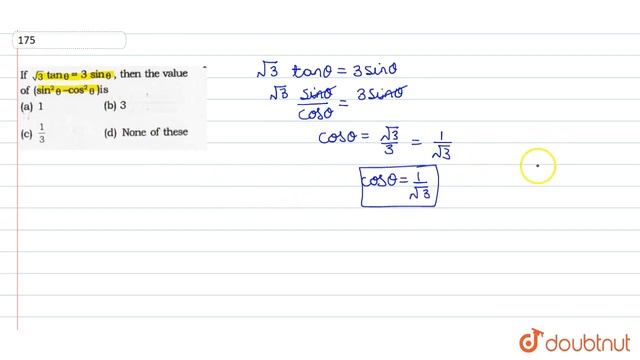 175
If √3 tan θ = 3 sin θ, then the value
of (sin² θ – cos² θ) is
(a) 1 (b) 3
(c) 1/3 (d) None of these
√3 tanθ = 3 sinθ
√3 sinθ/cosθ = 3 sinθ
cosθ = √3/3 = 1/√3
cosθ = 1/√3
doubtnut